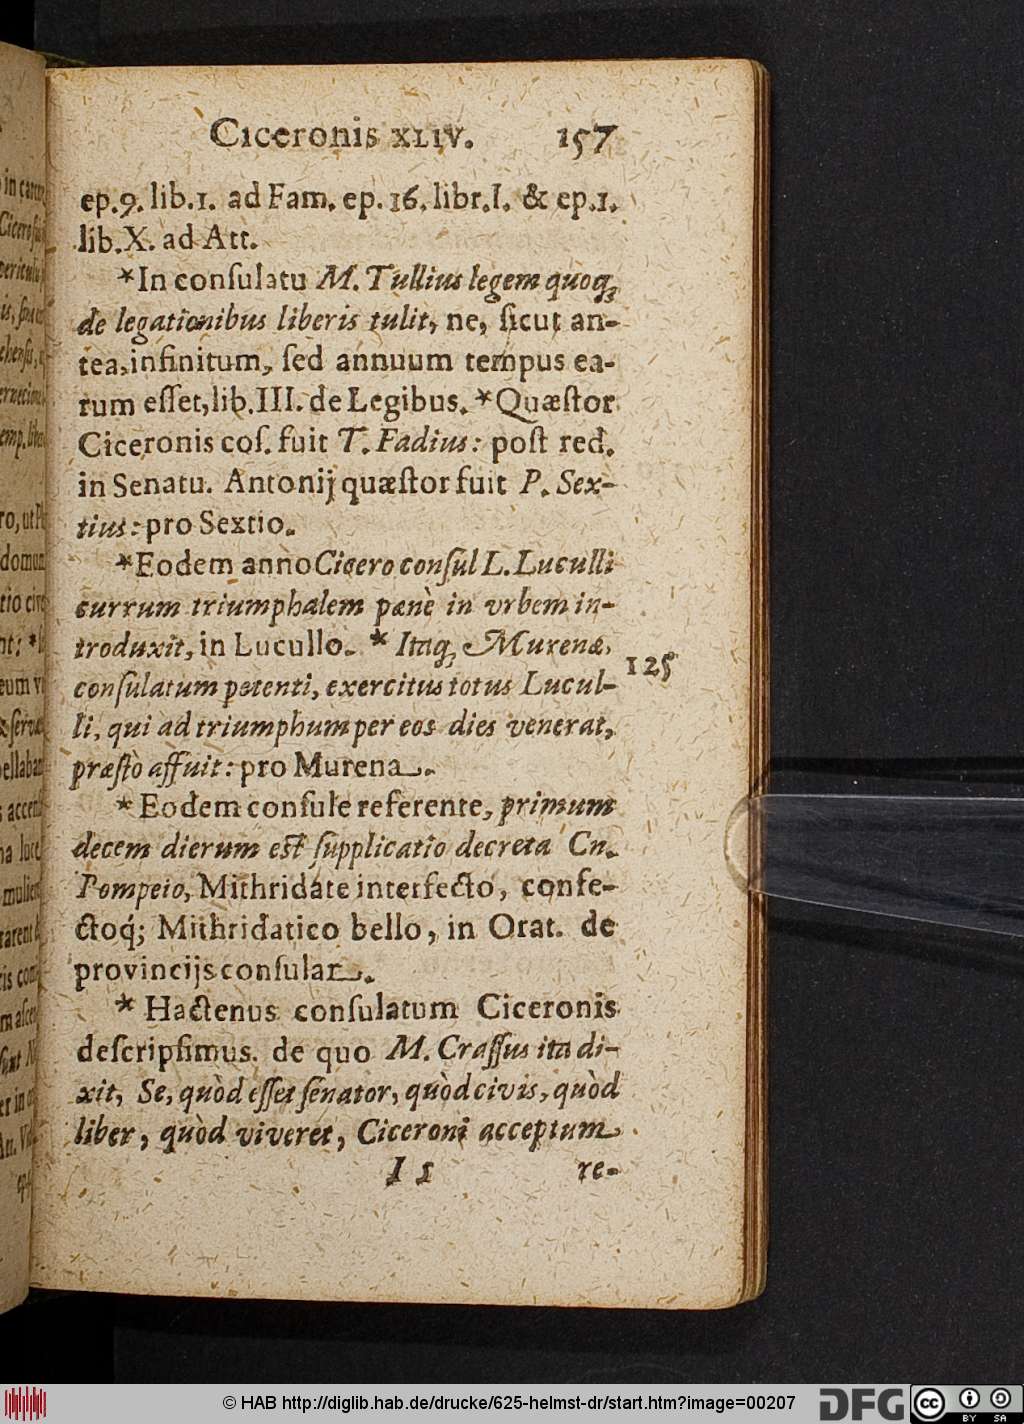 Ciceronis XLIV. 157
ep.9. lib.1. ad Fam. ep. 16. libr.I. & ep.1.
lib.X. ad Att.
*In conſulatu M. Tullius legem quoq;
de legationibus liberis tulit, ne, ſicut an-
tea, infinitum, ſed annuum tempus ea-
rum eſſet, lib.III. de Legibus. *Quæſtor
Ciceronis coſ. fuit T. Fadius: poſt red.
in Senatu. Antonij quæſtor fuit P. Sex-
tius: pro Sextio.
*Eodem anno Cicero conſul L. Luculli
currum triumphalem pænè in vrbem in-
troduxit, in Lucullo. * Itaq; Murenæ,
125
conſulatum petenti, exercitus totus Lucul-
li, qui ad triumphum per eos dies venerat,
præſtò affuit: pro Murena.
* Eodem conſule referente, primum
decem dierum eſt ſupplicatio decreta Cn.
Pompeio, Mithridate interfecto, confe-
ctoq́; Mithridatico bello, in Orat. de
provincijs conſular.
* Hactenus conſulatum Ciceronis
deſcripſimus. de quo M. Craſſus ita di-
xit, Se, quòd eſſet ſenator, quòd civis, quòd
liber, quòd viveret, Ciceroni acceptum
I 5 re-
© HAB http://diglib.hab.de/drucke/625-helmst-dr/start.htm?image=00207
DFG
cc BY SA